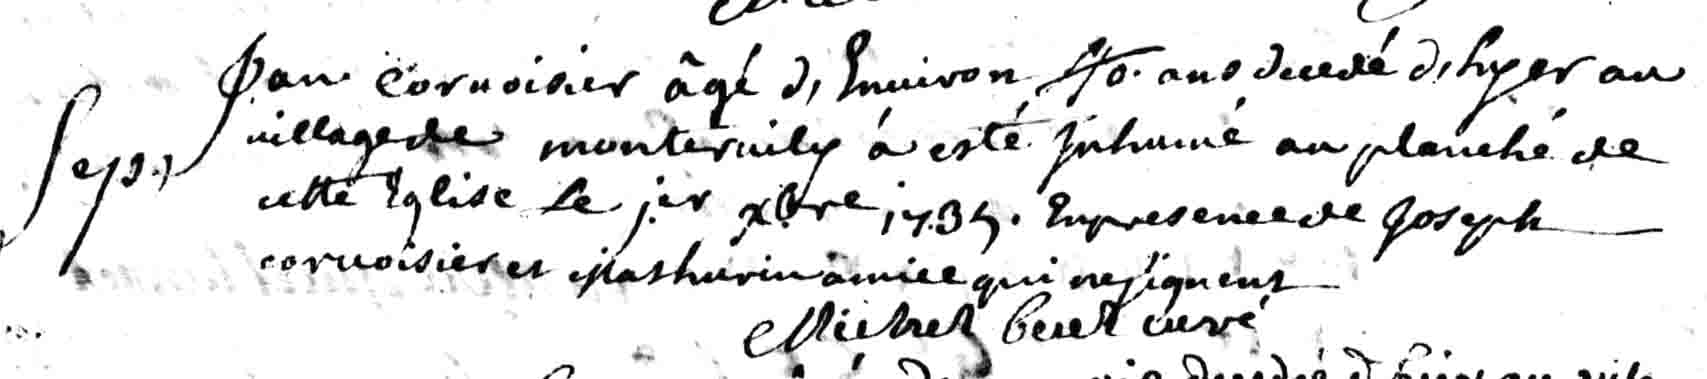 Jan Corvoisier âgé d'Environ 40. ans decedé d'hyer au
village de montervily á esté Inhumé au planché de
Sep.
cette Eglise Le j.er xbre 1735. En presence de Joseph
corvoisier et Mathurin amice qui ne signent
Michel curé
decedé d'hier au